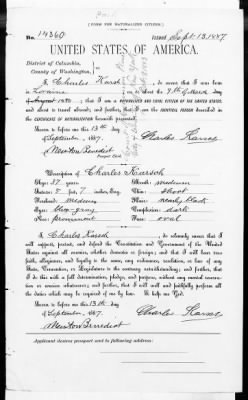 [FORM FOR NATURALIZED CITIZEN.]
No. 14360 Issued Sept. 13, 1887
UNITED STATES OF AMERICA.
District of Columbia,
County of Washington,
I, Charles Karsch, do swear that I was born
in Lorraine on or about the 9th of March day
of August 1850; that I am a NATURALIZED AND LOYAL CITIZEN OF THE UNITED STATES,
and about to travel abroad; and further, that I am the IDENTICAL PERSON described in the
CERTIFICATE OF NATURALIZATION herewith presented.
Sworn to before me this 13th day
of September, 1887.
Charles Karsch
Newton Benedict
Passport Clerk.
Description of Charles Karsch
Age: 37 years Mouth: medium
Stature: 5 feet, 7 inches, Eng. Chin: short
Forehead: medium Hair: nearly black
Eyes: blue-gray Complexion: dark
Nose: prominent Face: oval
I, Charles Karsch, do solemnly swear that I
will support, protect, and defend the Constitution and Government of the United
States against all enemies, whether domestic or foreign; and that I will bear true
faith, allegiance, and loyalty to the same, any ordinance, resolution, or law of any
State, Convention, or Legislature to the contrary notwithstanding; and further, that
I do this with a full determination, pledge, and purpose, without any mental reservation
or evasion whatsoever; and further, that I will well and faithfully perform all
the duties which may be required of me by law. So help me God.
Sworn to before me this 13th day
of September, 1887.
Charles Karsch
Newton Benedict
Applicant desires passport sent to following address: